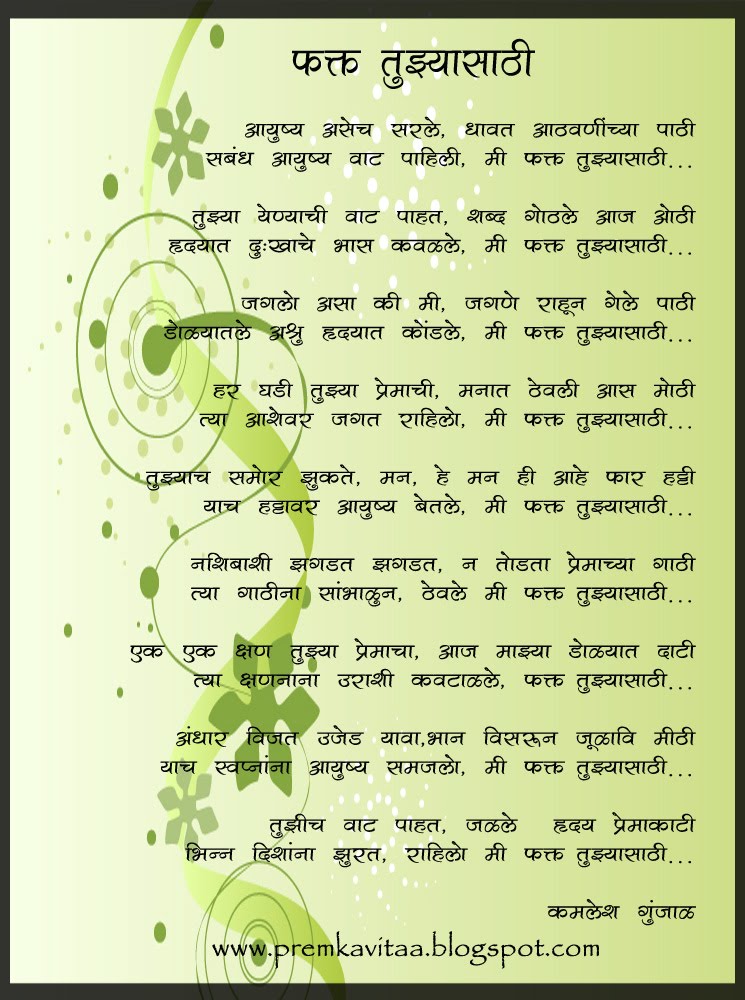 फक्त तुझ्यासाठी
आयुष्य असेच सरले, धावत आठवणींच्या पाठी
सबंध आयुष्य वाट पाहिली, मी फक्त तुझ्यासाठी...
तुझ्या येण्याची वाट पाहत, शब्द गोठले आज ओठी
हृदयात दुःखाचे भास कवळले, मी फक्त तुझ्यासाठी...
जगलो असा की मी, जगणे राहून गेले पाठी
डोळ्यातले अश्रु हृदयात कोंडले, मी फक्त तुझ्यासाठी...
हर घडी तुझ्या प्रेमाची, मनात ठेवली आस मोठी
त्या आशेवर जगत राहिलो, मी फक्त तुझ्यासाठी...
तुझ्याच समोर झुकते, मन, हे मन ही आहे फार हट्टी
याच हट्टावर आयुष्य बेतले, मी फक्त तुझ्यासाठी...
नशिबाशी झगडत झगडत, न तोडता प्रेमाच्या गाठी
त्या गाठीना सांभाळुन, ठेवले मी फक्त तुझ्यासाठी...
एक एक क्षण तुझ्या प्रेमाचा, आज माझ्या डोळ्यात दाटी
त्या क्षणनाना उराशी कवटाळले, फक्त तुझ्यासाठी...
अंधार विजत उजेड यावा,भान विसरून जूळावि मीठी
याच स्वप्नांना आयुष्य समजलो, मी फक्त तुझ्यासाठी...
तुझीच वाट पाहत, जळले हृदय प्रेमाकाटी
भिन्न दिशांना झुरत, राहिलो मी फक्त तुझ्यासाठी...
कमलेश गुंजाळ
www.premkavitaa.blogspot.com